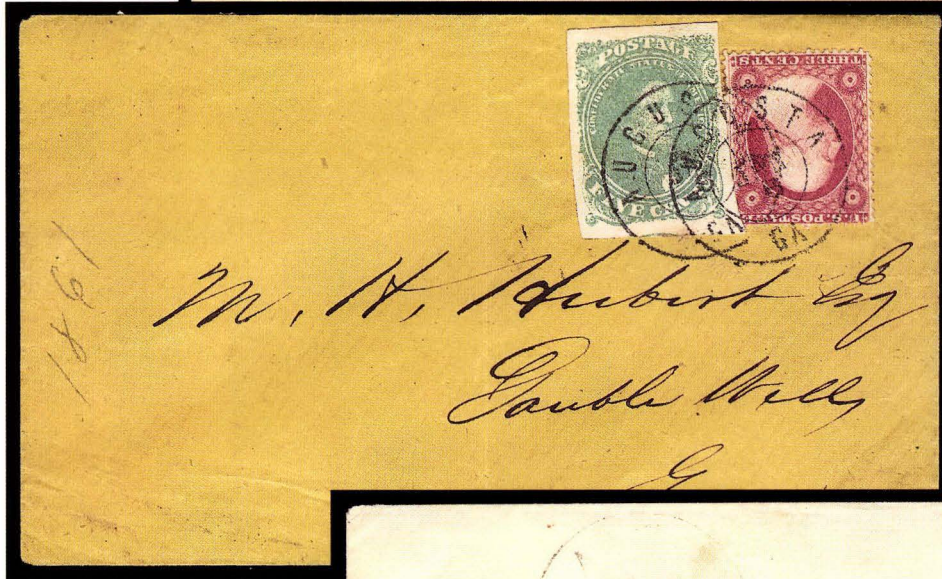 POSTAGE
CONFEDERATE STATES
FIVE CENTS
THREE CENTS
U.S. POSTAGE
AUGUSTA
GA
AUGUSTA
GA
1861
M. H. Hubert Esq
Double Wells
G